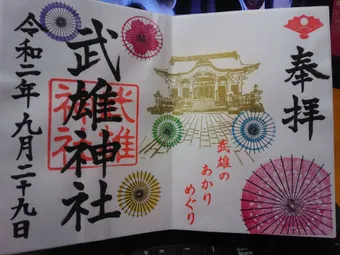 奉拝
武雄の
あかり
めぐり
武雄神社
武雄
神社
令和二年九月二十九日